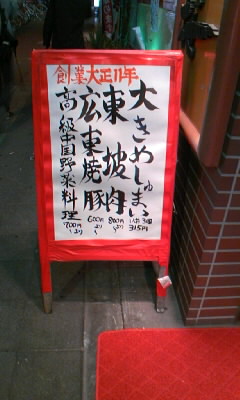 創業大正11年
大きめしゅまい
3コ
315円
東坡肉
800円
より
広東焼豚
600円
より
高級中国野菜料理
700円
より